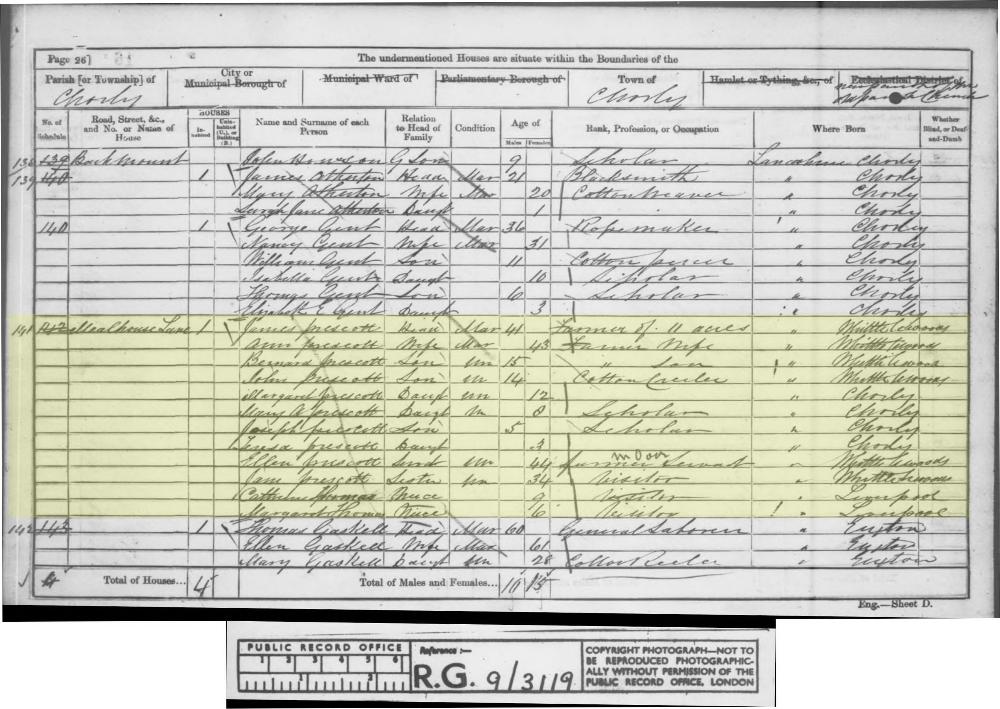 Page 26]
The undermentioned Houses are situate within the Boundaries of the
Parish [or Township] of City or Municipal Borough of Municipal Ward of Parliamentary Borough of Town of Hamlet or Tything, &c., of Ecclesiastical District of
Chorley Chorley
No. of Schedule Road, Street, &c., and No. or Name of House HOUSES Inhabited Uninhabited (U.), or Building (B.) Name and Surname of each Person Relation to Head of Family Condition Age of Males Females Rank, Profession, or Occupation Where Born Whether Blind, or Deaf-and-Dumb
138 139 Back mount John Howson G Son 9 Scholar Lancashire Chorley
139 140 1 James Atherton Head Mar 21 Blacksmith " Chorley
Mary Atherton Wife Mar 20 Cotton Weaver " Chorley
Sarah Jane Atherton Daur 1 " Chorley
140 1 George Gent Head Mar 36 Rope maker " Chorley
Nancy Gent Wife Mar 31 Chorley
William Gent Son 11 Cotton piecer " Chorley
Isabella Gent Daur 10 Scholar " Chorley
Thomas Gent Son 6 Scholar " Chorley
Elizabeth E Gent Daur 3 " Chorley
141 142 Mealhouse Lane 1 James Prescott Head Mar 41 Farmer of 11 acres " Whittle Lewoods
Ann Prescott Wife Mar 43 Farmer Wife " Whittle Lewoods
Bernard Prescott Son Un 15 " Son " Whittle Lewoods
John Prescott Son Un 14 Cotton " Whittle Lewoods
Margaret Prescott Daur Un 12 " Chorley
Mary A Prescott Daur Un 8 Scholar " Chorley
Joseph Prescott Son 5 Scholar " Chorley
Teresa Prescott Daur 3 " Chorley
Ellen Prescott Servt Un 44 Farmer in Door Servant " Whittle Lewoods
Jane Prescott Sister Un 34 Visitor " Whittle Lewoods
Catherine Thomas Niece 9 Visitor " Liverpool
Margaret Thomas Niece 6 Visitor " Liverpool
142 143 1 Thomas Gaskell Head Mar 60 General Laborer " Euxton
Ellen Gaskell Wife Mar 61 " Euxton
Mary Gaskell Daur Un 28 Cotton Reeler " Euxton
4 Total of Houses... 4 Total of Males and Females... 10 15
Eng.—Sheet D.
PUBLIC RECORD OFFICE
1 2 3 4 5 6
Reference :—
R.G. 9/3119
COPYRIGHT PHOTOGRAPH—NOT TO
BE REPRODUCED PHOTOGRAPHIC-
ALLY WITHOUT PERMISSION OF THE
PUBLIC RECORD OFFICE, LONDON